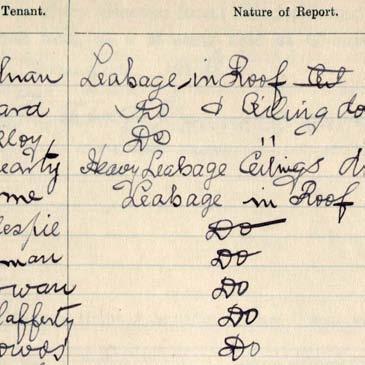 Tenant. Nature of Report.
lman Leabage in Roof
ard Do & Ceiling do
lloy Do "
earty Heavy Leabage Ceilings d
me Leabage in Roof
lespie Do
man Do
owan Do
lafferty Do
owas Do